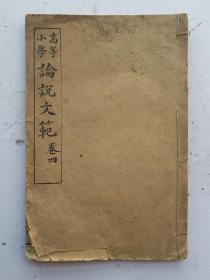 高等小學論說文範 卷四